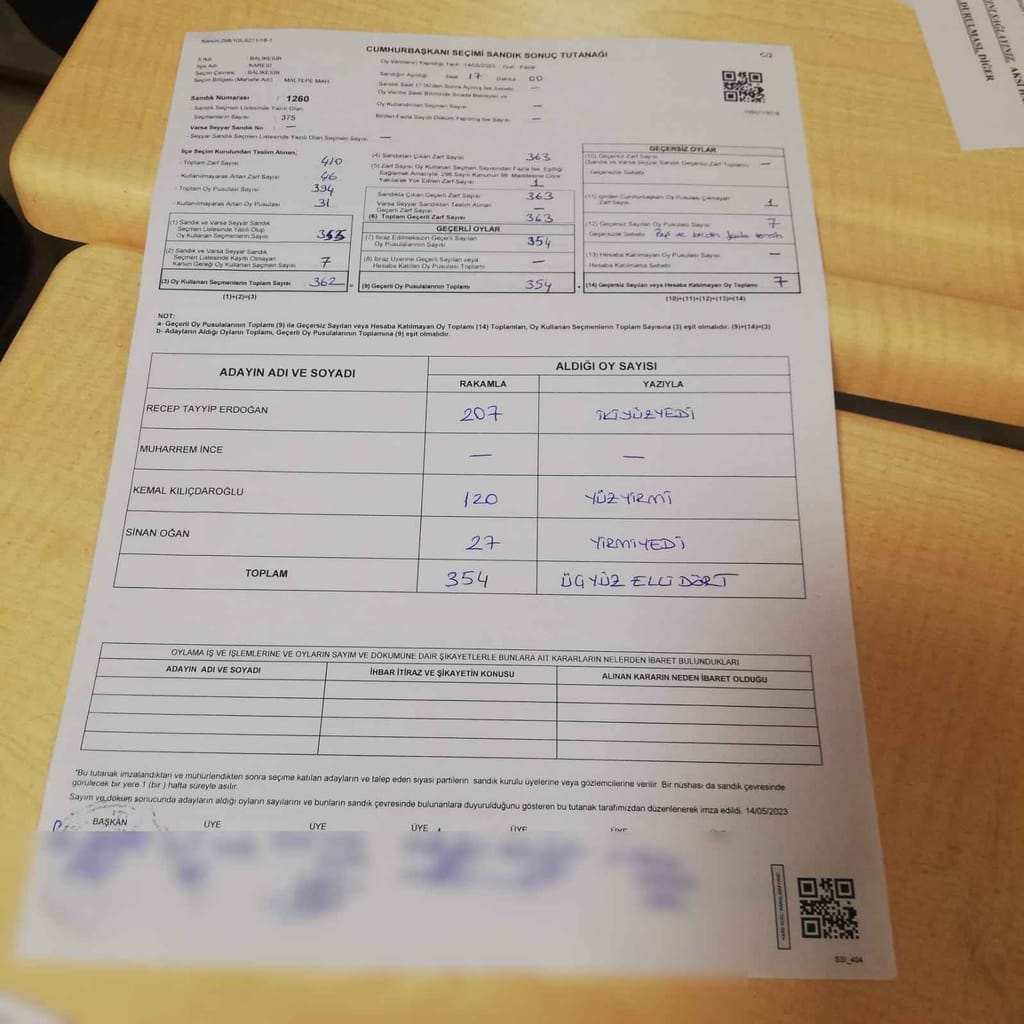 CUMHURBAŞKANI SEÇİMİ SANDIK SONUÇ TUTANAĞI
C/2
İl Adı : BALIKESİR
İlçe Adı : KARESİ
Seçim Çevresi : BALIKESİR
Seçim Bölgesi (Mahalle Adı) : MALTEPE MAH.
Oy Vermenin Yapıldığı Tarih : 14/05/2023 Gün : Pazar
Sandığın Açıldığı Saat 17 Dakika 00
Sandık Saat 17.00'den Sonra Açılmış İse Sebebi —
Oy Verme Saati Bitiminde Sırada Bekleyen ve
Oy Kullandırılan Seçmen Sayısı —
Birden Fazla Sayım Döküm Yapılmış İse Sayısı —
Sandık Numarası : 1260
- Sandık Seçmen Listesinde Yazılı Olan
Seçmenlerin Sayısı : 375
Varsa Seyyar Sandık No : —
- Seyyar Sandık Seçmen Listesinde Yazılı Olan Seçmen Sayısı : —
İlçe Seçim Kurulundan Teslim Alınan;
- Toplam Zarf Sayısı : 410
- Kullanılmayarak Artan Zarf Sayısı : 46
- Toplam Oy Pusulası Sayısı : 394
- Kullanılmayarak Artan Oy Pusulası : 31
(1) Sandık ve Varsa Seyyar Sandık
Seçmen Listesinde Yazılı Olup
Oy Kullanan Seçmenlerin Sayısı
(2) Sandık ve Varsa Seyyar Sandık
Seçmen Listesinde Kayıtlı Olmayan
Kanun Gereği Oy Kullanan Seçmen Sayısı 7
(3) Oy Kullanan Seçmenlerin Toplam Sayısı 362
(1)+(2)=(3)
(4) Sandıktan Çıkan Zarf Sayısı 363
(5) Zarf Sayısı Oy Kullanan Seçmen Sayısından Fazla İse, Eşitliği
Sağlamak Amacıyla, 298 Sayılı Kanunun 98. Maddesine Göre
Yakılarak Yok Edilen Zarf Sayısı 1
Sandıkta Çıkan Geçerli Zarf Sayısı 363
Varsa Seyyar Sandıktan Teslim Alınan
Geçerli Zarf Sayısı —
(6) Toplam Geçerli Zarf Sayısı 363
GEÇERLİ OYLAR
(7) İtiraz Edilmeksizin Geçerli Sayılan
Oy Pusulalarının Sayısı 354
(8) İtiraz Üzerine Geçerli Sayılan veya
Hesaba Katılan Oy Pusulası Toplamı —
(9) Geçerli Oy Pusulalarının Toplamı 354
GEÇERSİZ OYLAR
(10) Geçersiz Zarf Sayısı
(Sandık ve Varsa Seyyar Sandık Geçersiz Zarf Toplamı) —
Geçersizlik Sebebi
(11) İçinden Cumhurbaşkanı Oy Pusulası Çıkmayan
Zarf Sayısı 1
(12) Geçersiz Sayılan Oy Pusulası Sayısı 7
Geçersizlik Sebebi
(13) Hesaba Katılmayan Oy Pusulası Sayısı —
Hesaba Katılmama Sebebi
(14) Geçersiz Sayılan veya Hesaba Katılmayan Oy Toplamı 7
(10)+(11)+(12)+(13)=(14)
NOT:
a- Geçerli Oy Pusulalarının Toplamı (9) ile Geçersiz Sayılan veya Hesaba Katılmayan Oy Toplamı (14) Toplamları, Oy Kullanan Seçmenlerin Toplam Sayısına (3) eşit olmalıdır. (9)+(14)=(3)
b- Adayların Aldığı Oyların Toplamı, Geçerli Oy Pusulalarının Toplamına (9) eşit olmalıdır.
ADAYIN ADI VE SOYADI
ALDIĞI OY SAYISI
RAKAMLA YAZIYLA
RECEP TAYYİP ERDOĞAN 207 İKİYÜZYEDİ
MUHARREM İNCE — —
KEMAL KILIÇDAROĞLU 120 YÜZYİRMİ
SİNAN OĞAN 27 YİRMİYEDİ
TOPLAM 354 ÜÇYÜZ ELLİ DÖRT
OYLAMA İŞ VE İŞLEMLERİNE VE OYLARIN SAYIM VE DÖKÜMÜNE DAİR ŞİKAYETLERLE BUNLARA AİT KARARLARIN NELERDEN İBARET BULUNDUKLARI
ADAYIN ADI VE SOYADI İHBAR İTİRAZ VE ŞİKAYETİN KONUSU ALINAN KARARIN NEDEN İBARET OLDUĞU
"Bu tutanak imzalandıktan ve mühürlendikten sonra seçime katılan adayların ve talep eden siyasi partilerin sandık kurulu üyelerine veya gözlemcilerine verilir. Bir nüshası da sandık çevresinde
görülecek bir yere 1 (bir) hafta süreyle asılır.
Sayım ve döküm sonucunda adayların aldığı oyların sayılarını ve bunların sandık çevresinde bulunanlara duyurulduğunu gösteren bu tutanak tarafımızdan düzenlenerek imza edildi. 14/05/2023
BAŞKAN ÜYE ÜYE ÜYE ÜYE ÜYE
SSI_404
DURULMASI, DİĞER